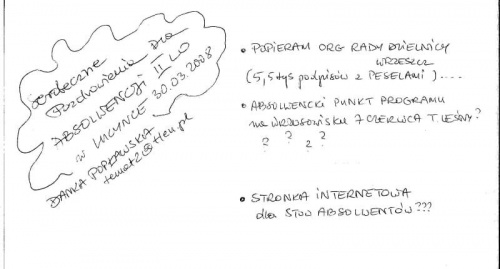 Serdeczne
Pozdrowienia dla
ABSOLWENCJI II LO
w LUCYNCE 30.03.2008
DANKA POPŁAWSKA
temat2@tlen.pl
• POPIERAM ORG RADY DZIELNICY
WRZESZCZ
(5,5 tys podpisów z PESELAMI)....
• ABSOLWENCKI PUNKT PROGRAMU
na WRZOSOWISKU 7 CZERWCA T. LEŚNY?
? ? ? ?
• STRONKA INTERNETOWA
dla STOW ABSOLWENTÓW???